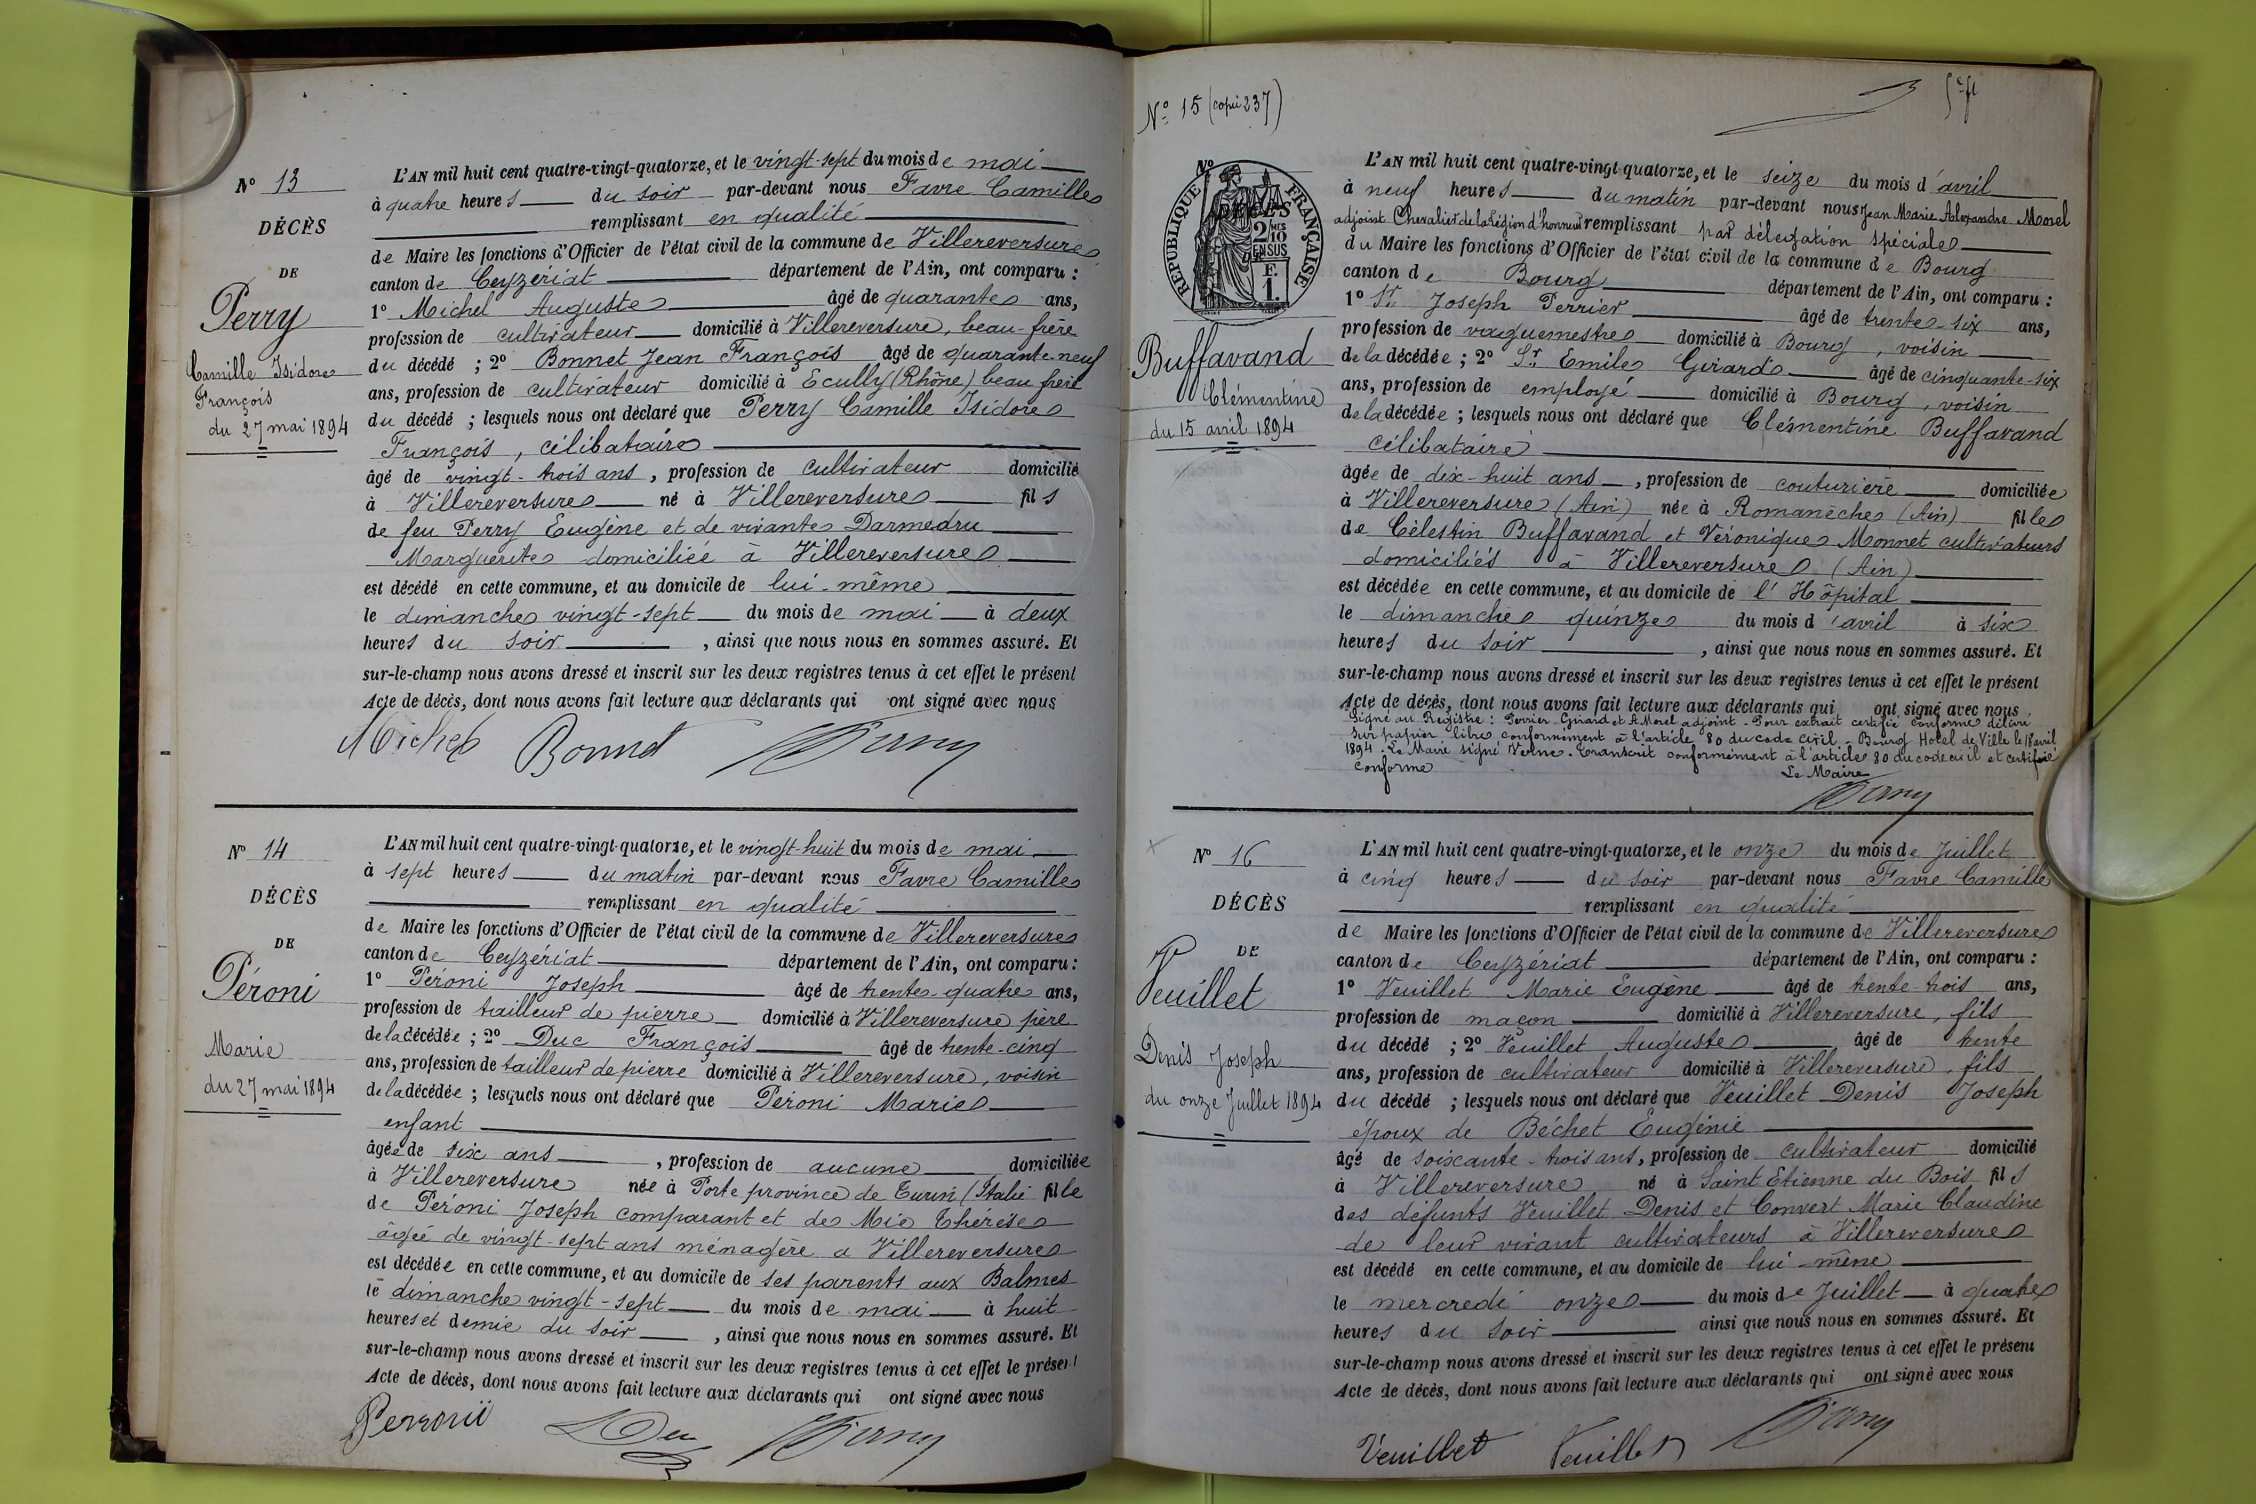 N° 13
DÉCÈS
DE
Perry
Camille Isidore
François
du 27 mai 1894
L'AN mil huit cent quatre-vingt-quatorze, et le vingt-sept du mois de mai
à quatre heures du soir par-devant nous Favre Camille
remplissant en qualité
de Maire les fonctions d'Officier de l'état civil de la commune de Villereversure
canton de Ceyzériat département de l'Ain, ont comparu :
1° Michel Auguste âgé de quarante ans,
profession de cultivateur domicilié à Villereversure, beau-frère
du décédé ; 2° Bonnet Jean François âgé de quarante neuf
ans, profession de cultivateur domicilié à Ecully (Rhône) beau frère
du décédé ; lesquels nous ont déclaré que Perry Camille Isidore
François, célibataire
âgé de vingt-trois ans, profession de cultivateur domicilié
à Villereversure né à Villereversure fils
de feu Perry Eugène et de vivante Darmedru
Marguerite domiciliée à Villereversure
est décédé en cette commune, et au domicile de lui-même
le dimanche vingt-sept du mois de mai à deux
heures du soir, ainsi que nous nous en sommes assuré. Et
sur-le-champ nous avons dressé et inscrit sur les deux registres tenus à cet effet le présent
Acte de décès, dont nous avons fait lecture aux déclarants qui ont signé avec nous
Michel Bonnet
N° 14
DÉCÈS
DE
Péroni
Marie
du 27 mai 1894
L'AN mil huit cent quatre-vingt-quatorze, et le vingt-huit du mois de mai
à sept heures du matin par-devant nous Favre Camille
remplissant en qualité
de Maire les fonctions d'Officier de l'état civil de la commune de Villereversure
canton de Ceyzériat département de l'Ain, ont comparu :
1° Péroni Joseph âgé de trente-quatre ans,
profession de tailleur de pierre domicilié à Villereversure père
de la décédée ; 2° Duc François âgé de trente-cinq
ans, profession de tailleur de pierre domicilié à Villereversure, voisin
de la décédée ; lesquels nous ont déclaré que Péroni Marie
enfant
âgée de six ans, profession de aucune domiciliée
à Villereversure née à Porte province de Turin (Italie fille
de Péroni Joseph comparant et de Mie Thérèse
âgée de vingt-sept ans ménagère a Villereversure
est décédée en cette commune, et au domicile de ses parents aux Balmes
le dimanche vingt-sept du mois de mai à huit
heures et demie du soir, ainsi que nous nous en sommes assuré. Et
sur-le-champ nous avons dressé et inscrit sur les deux registres tenus à cet effet le présent
Acte de décès, dont nous avons fait lecture aux déclarants qui ont signé avec nous
Perronii Duc
N° 15 (copie 237)
N°
RÉPUBLIQUE FRANÇAISE
DÉCÈS
2/10 MES
EN SUS
F.
1.
Buffavand
Clémentine
du 15 avril 1894
L'AN mil huit cent quatre-vingt-quatorze, et le seize du mois d'avril
à neuf heures du matin par-devant nous Jean Marie Alexandre Morel
adjoint Chevalier de la Légion d'honneur remplissant par délégation spéciale
du Maire les fonctions d'Officier de l'état civil de la commune de Bourg
canton de Bourg département de l'Ain, ont comparu :
1° Sr Joseph Perrier âgé de trente-six ans,
profession de vaguemestre domicilié à Bourg, voisin
de la décédée ; 2° Sr Emile Girard âgé de cinquante-six
ans, profession de employé domicilié à Bourg, voisin
de la décédée ; lesquels nous ont déclaré que Clémentine Buffavand
célibataire
âgée de dix-huit ans, profession de couturière domiciliée
à Villereversure (Ain) née à Romanèche (Ain) fille
de Célestin Buffavand et Véronique Monnet cultivateurs
domiciliés à Villereversure (Ain)
est décédée en cette commune, et au domicile de l'Hôpital
le dimanche quinze du mois d'avril à six
heures du soir, ainsi que nous nous en sommes assuré. Et
sur-le-champ nous avons dressé et inscrit sur les deux registres tenus à cet effet le présent
Acte de décès, dont nous avons fait lecture aux déclarants qui ont signé avec nous
Signé au Registre : Perrier Girard et A. Morel adjoint - Pour extrait certifié conforme délivré
sur papier libre conformément à l'article 80 du code civil. Bourg Hotel de Ville le 18 avril
1894. Le Maire signé Verne. Transcrit conformément à l'article 80 du code civil et certifié
conforme
Le Maire
N° 16
DÉCÈS
DE
Veuillet
Denis Joseph
du onze Juillet 1894
L'AN mil huit cent quatre-vingt-quatorze, et le onze du mois de Juillet
à cinq heures du soir par-devant nous Favre Camille
remplissant en qualité
de Maire les fonctions d'Officier de l'état civil de la commune de Villereversure
canton de Ceyzériat département de l'Ain, ont comparu :
1° Veuillet Marie Eugène âgé de trente-trois ans,
profession de maçon domicilié à Villereversure, fils
du décédé ; 2° Veuillet Auguste âgé de trente
ans, profession de cultivateur domicilié à Villereversure, fils
du décédé ; lesquels nous ont déclaré que Veuillet Denis Joseph
époux de Béchet Eugénie
âgé de soixante-trois ans, profession de cultivateur domicilié
à Villereversure né à Saint Etienne du Bois fils
des défunts Veuillet Denis et Convert Marie Claudine
de leur vivant cultivateurs à Villereversure
est décédé en cette commune, et au domicile de lui-même
le mercredi onze du mois de Juillet à quatre
heures du soir ainsi que nous nous en sommes assuré. Et
sur-le-champ nous avons dressé et inscrit sur les deux registres tenus à cet effet le présent
Acte de décès, dont nous avons fait lecture aux déclarants qui ont signé avec nous
Veuillet Veuillet